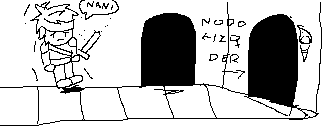 NANI
NODO
←IZQ
DER
→